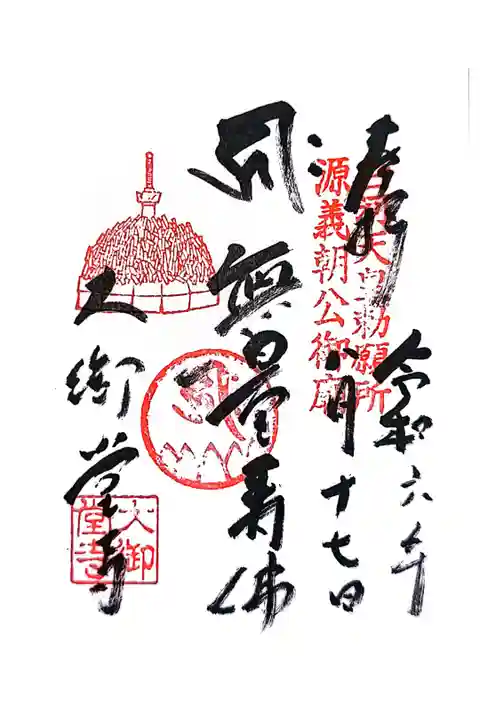 奉拝
令和六年
八月十七日
白河天皇勅願所
源義朝公御廟
無量壽佛
大御堂寺
大御
堂寺